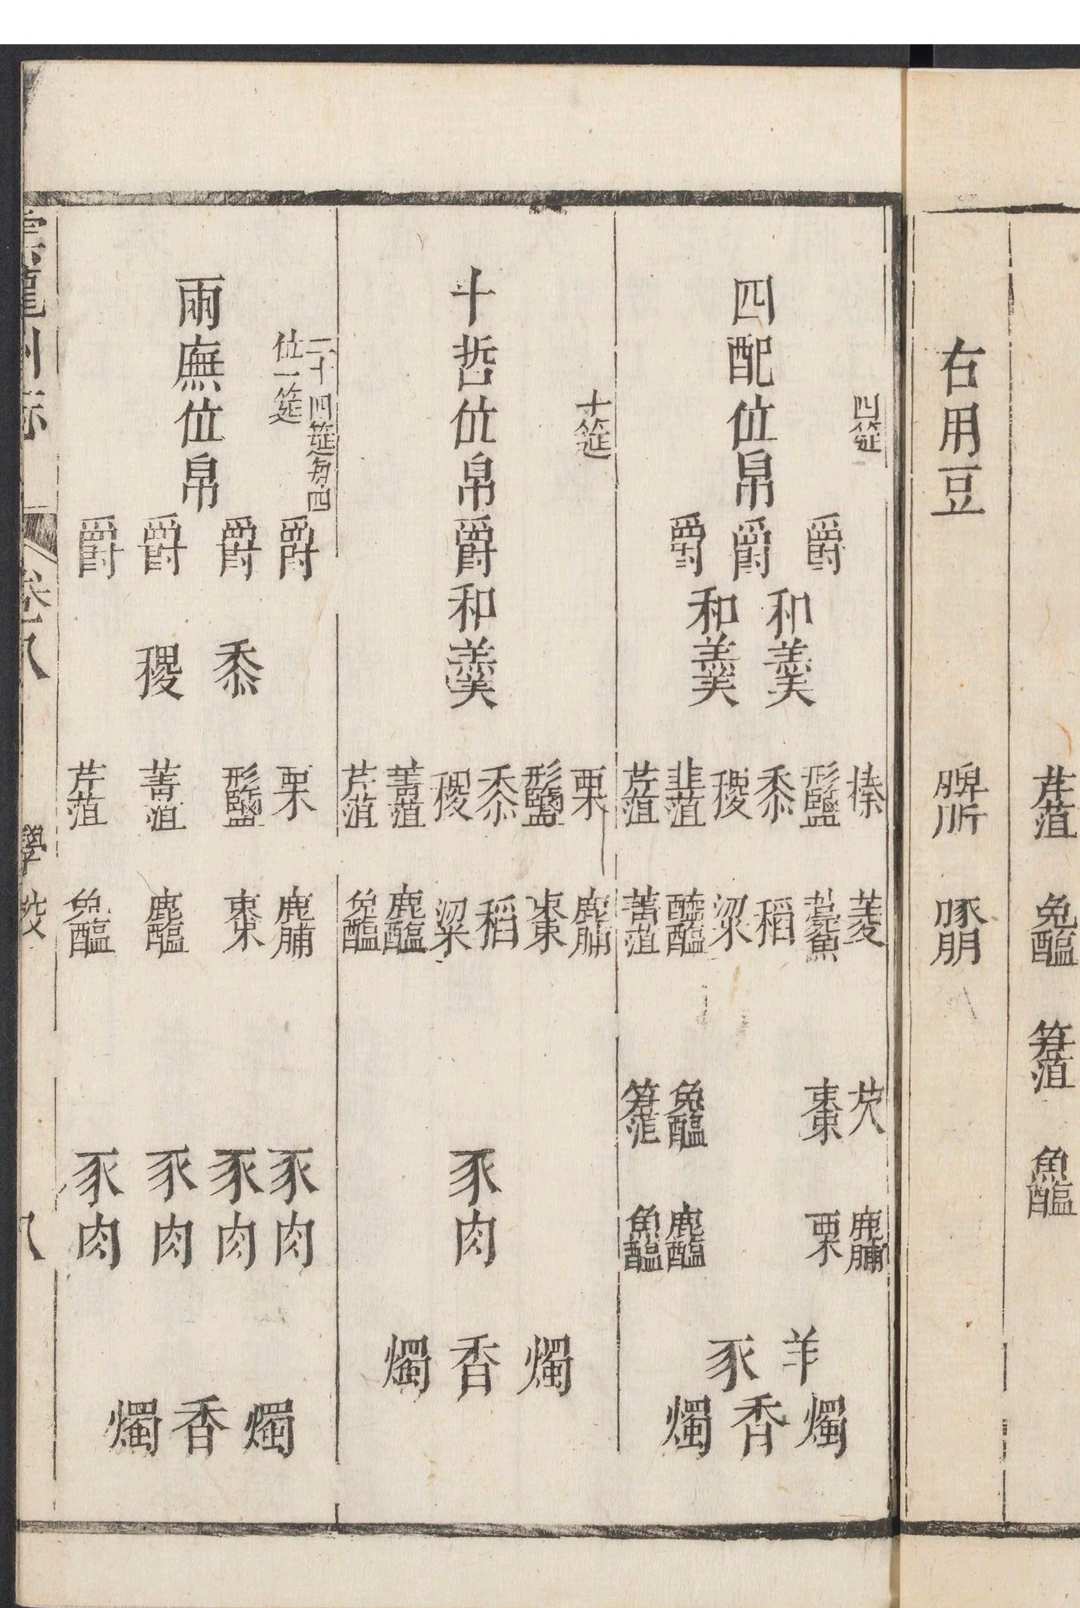 芹菹 兔醢 筍菹 魚醢
右用豆
脾肵 豚胉
四筵
四配位帛
爵 爵 爵
和羹 和羹
榛 菱 芡 鹿脯
形鹽 藁魚 棗 栗
黍 稻
稷 粱
韭菹 醓醢 兔醢 鹿醢
芹菹 菁菹 筍菹 魚醢
羊 豕
燭 香 燭
十筵
十哲位帛爵和羹
栗 鹿脯
形鹽 棗
黍 稻
稷 粱
菁菹 鹿醢
芹菹 兔醢
豕肉
燭 香 燭
二十四筵每四
位一筵
兩廡位帛
爵 爵 爵 爵
黍 稷
栗 鹿脯
形鹽 棗
菁菹 鹿醢
芹菹 兔醢
豕肉 豕肉 豕肉 豕肉
燭 香 燭
雲龍州志 卷八 學校 八